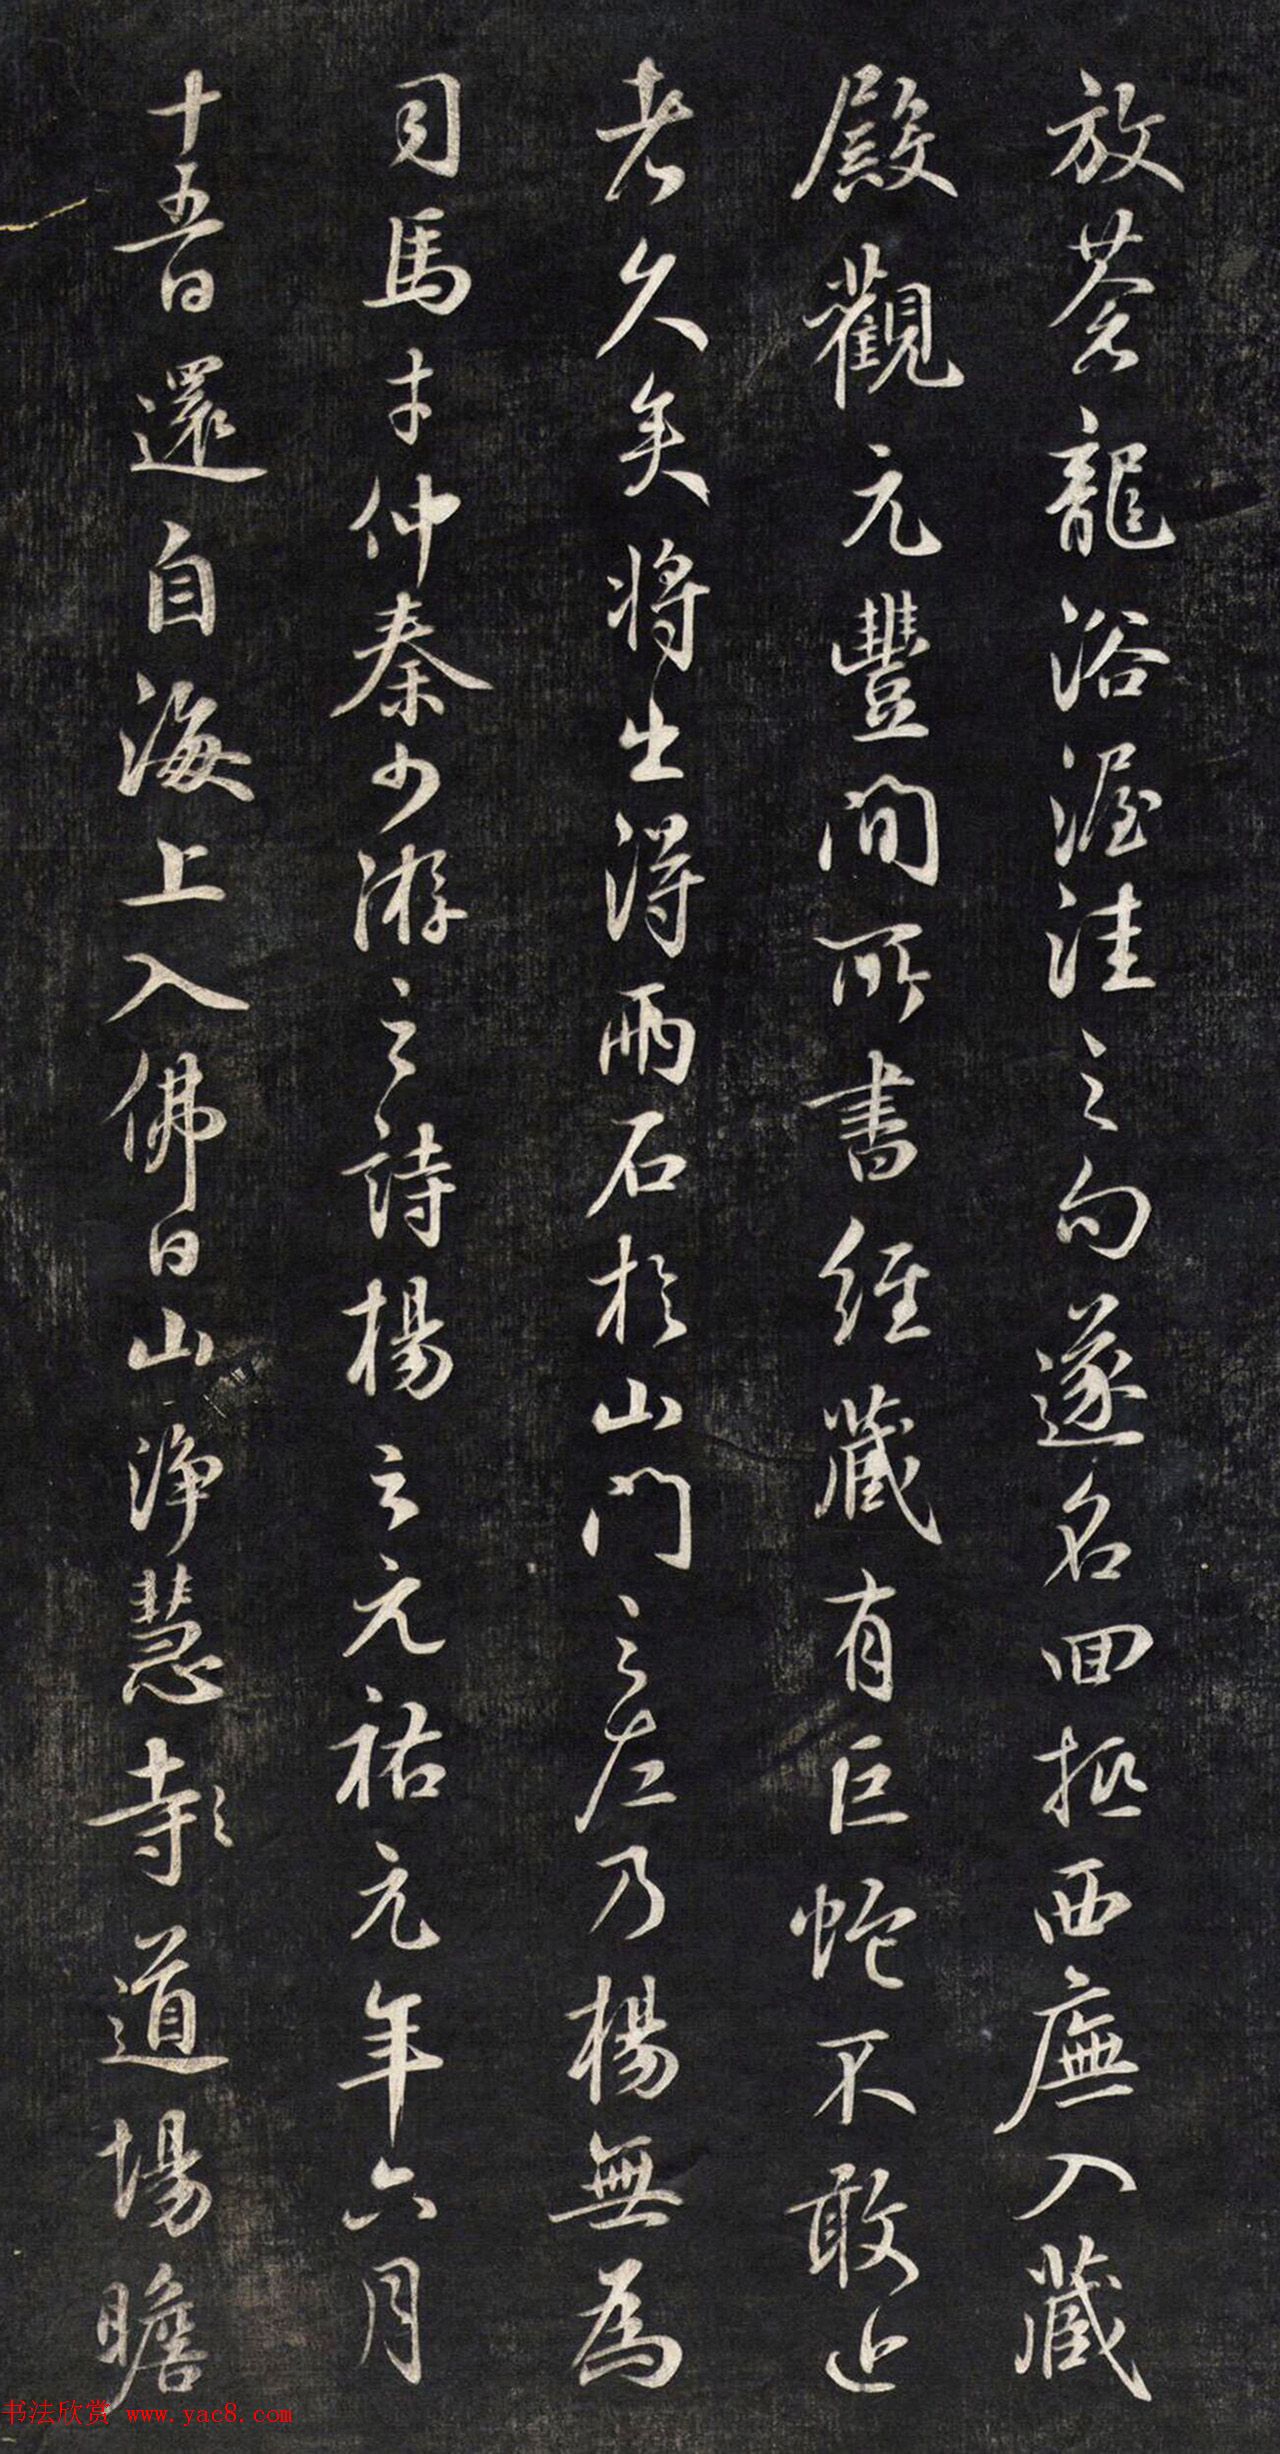 放蒼龍浴渥洼之句遂名面拒西廡入藏
殿觀元豐間所書經藏有巨蛇不敢近
者久矣將出得兩石於山門之左乃楊無為
司馬才仲秦少游之詩楊云元祐元年六月
十五日還自海上入佛日山淨慧寺彰道場瞻
书法欣赏 www.yac8.com